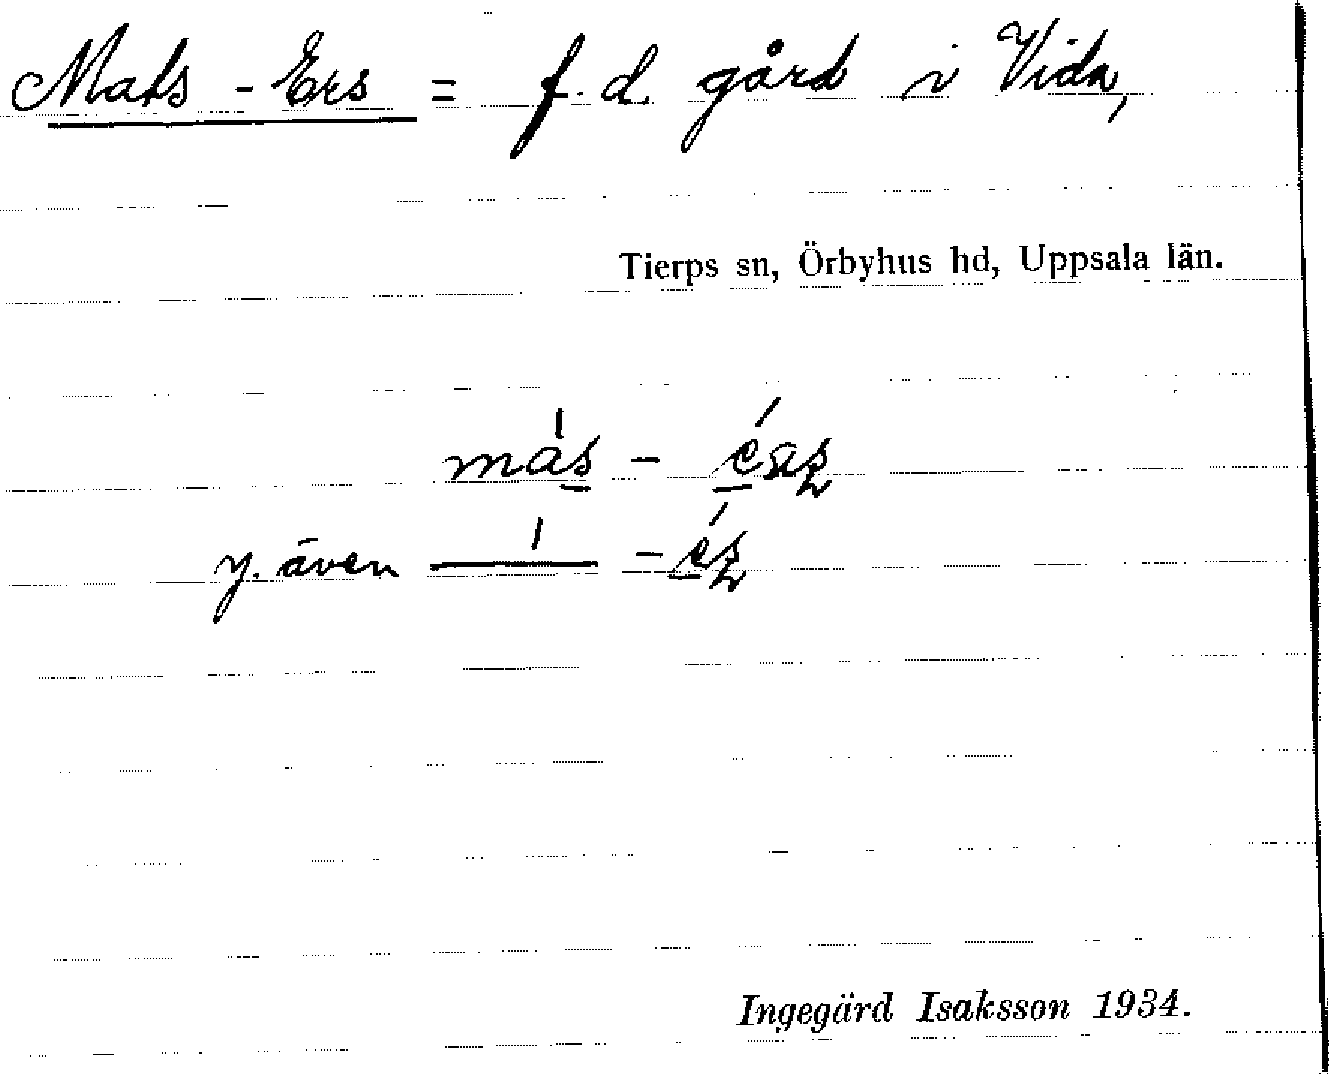 Mats - Ers = f. d. gård i Vida,
Tierps sn, Örbyhus hd, Uppsala län.
y. även
Ingegärd Isaksson 1934.